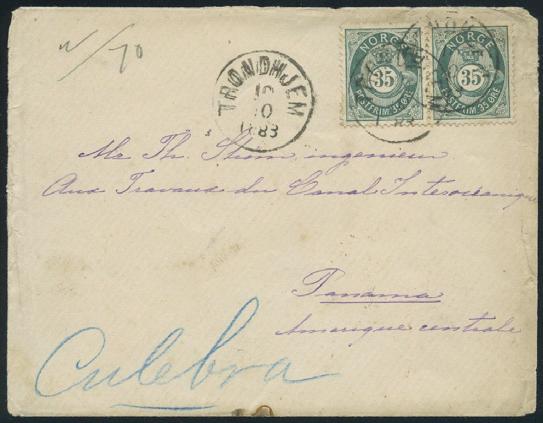 N/70
NORGE
35
POSTFRIM 35 ØRE
NORGE
35
POSTFRIM 35 ØRE
TRONDHJEM
10
1883
Mr Th. Strom, ingenieur
Aux Travaux du Canal Interocéanique
Panama
Amerique centrale
Culebra